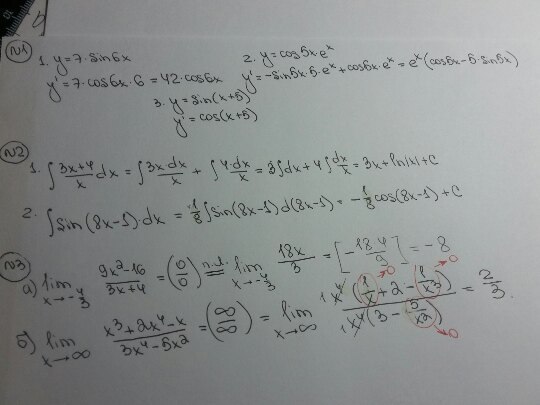 N1
1. y=7·sin6x
y'=7·cos6x·6=42·cos6x
2. y=cos5x·eˣ
y'=-sin5x·5·eˣ+cos5x·eˣ=eˣ(cos5x-5·sin5x)
3. y=sin(x+5)
y'=cos(x+5)
N2
1. ∫ (3x+4)/x dx = ∫ 3x·dx/x + ∫ 4·dx/x = 3∫dx+4∫dx/x = 3x+ln|x|+C
2. ∫sin(8x-1)·dx = 1/8 ∫sin(8x-1)d(8x-1) = -1/8 cos(8x-1)+C
N3
а) lim x→-4/3 (9x²-16)/(3x+4) = (0/0) = lim x→-4/3 18x/3 = [-18·4/9] = -8
б) lim x→∞ (x³+2x⁴-x)/(3x⁴-5x²) = (∞/∞) = lim x→∞ x⁴(1/x+2-1/x³)/x⁴(3-5/x²) = 2/3.